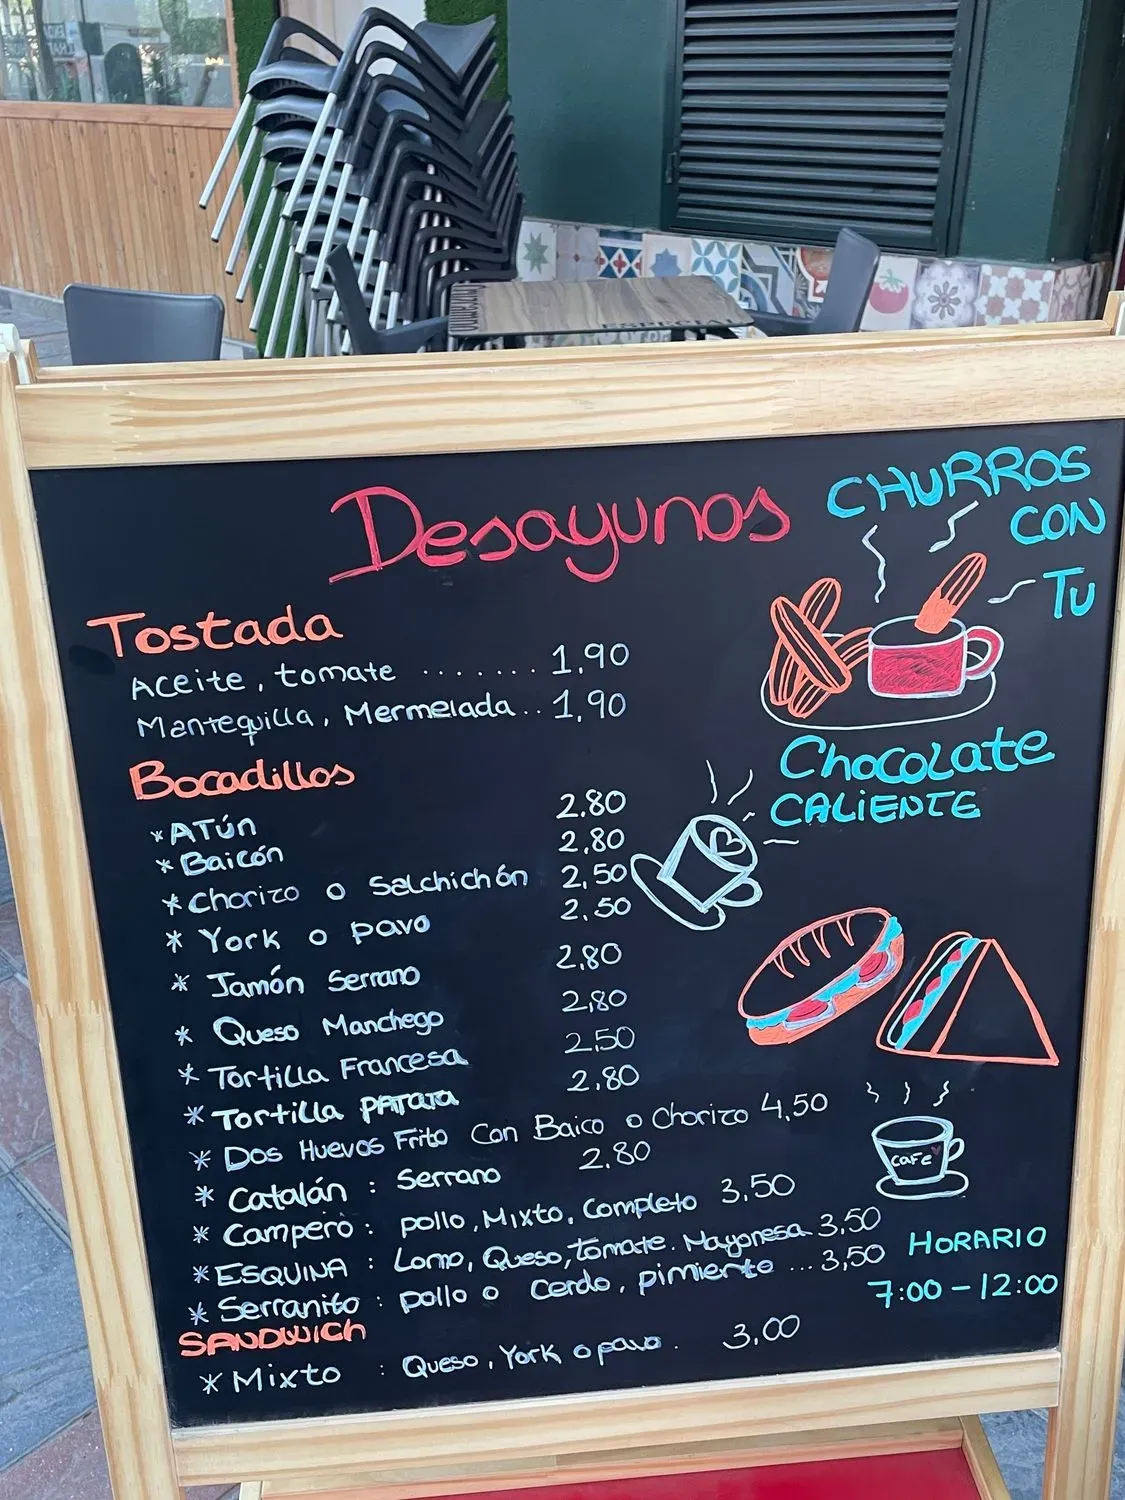 Desayunos
CHURROS
CON
TU
Chocolate
CALIENTE
Tostada
Aceite, tomate ....... 1,90
Mantequilla, Mermelada.. 1,90
Bocadillos
*ATún 2,80
*Baicón 2,80
*Chorizo o Salchichón 2,50
* York o pavo 2,50
* Jamón Serrano 2,80
* Queso Manchego 2,80
* Tortilla Francesa 2,50
* Tortilla PATATA 2,80
* Dos Huevos Frito Con Baico o Chorizo 4,50
* Catalán : Serrano 2,80
* Campero : pollo, Mixto, Completo 3,50
*ESQUINA : Lomo, Queso, tomate. Mayonesa 3,50
* Serranito : pollo o Cerdo, pimiento ... 3,50
SANDWICH
* Mixto : Queso, York o pavo . 3,00
CAFE
HORARIO
7:00 - 12:00
ESPECIAL